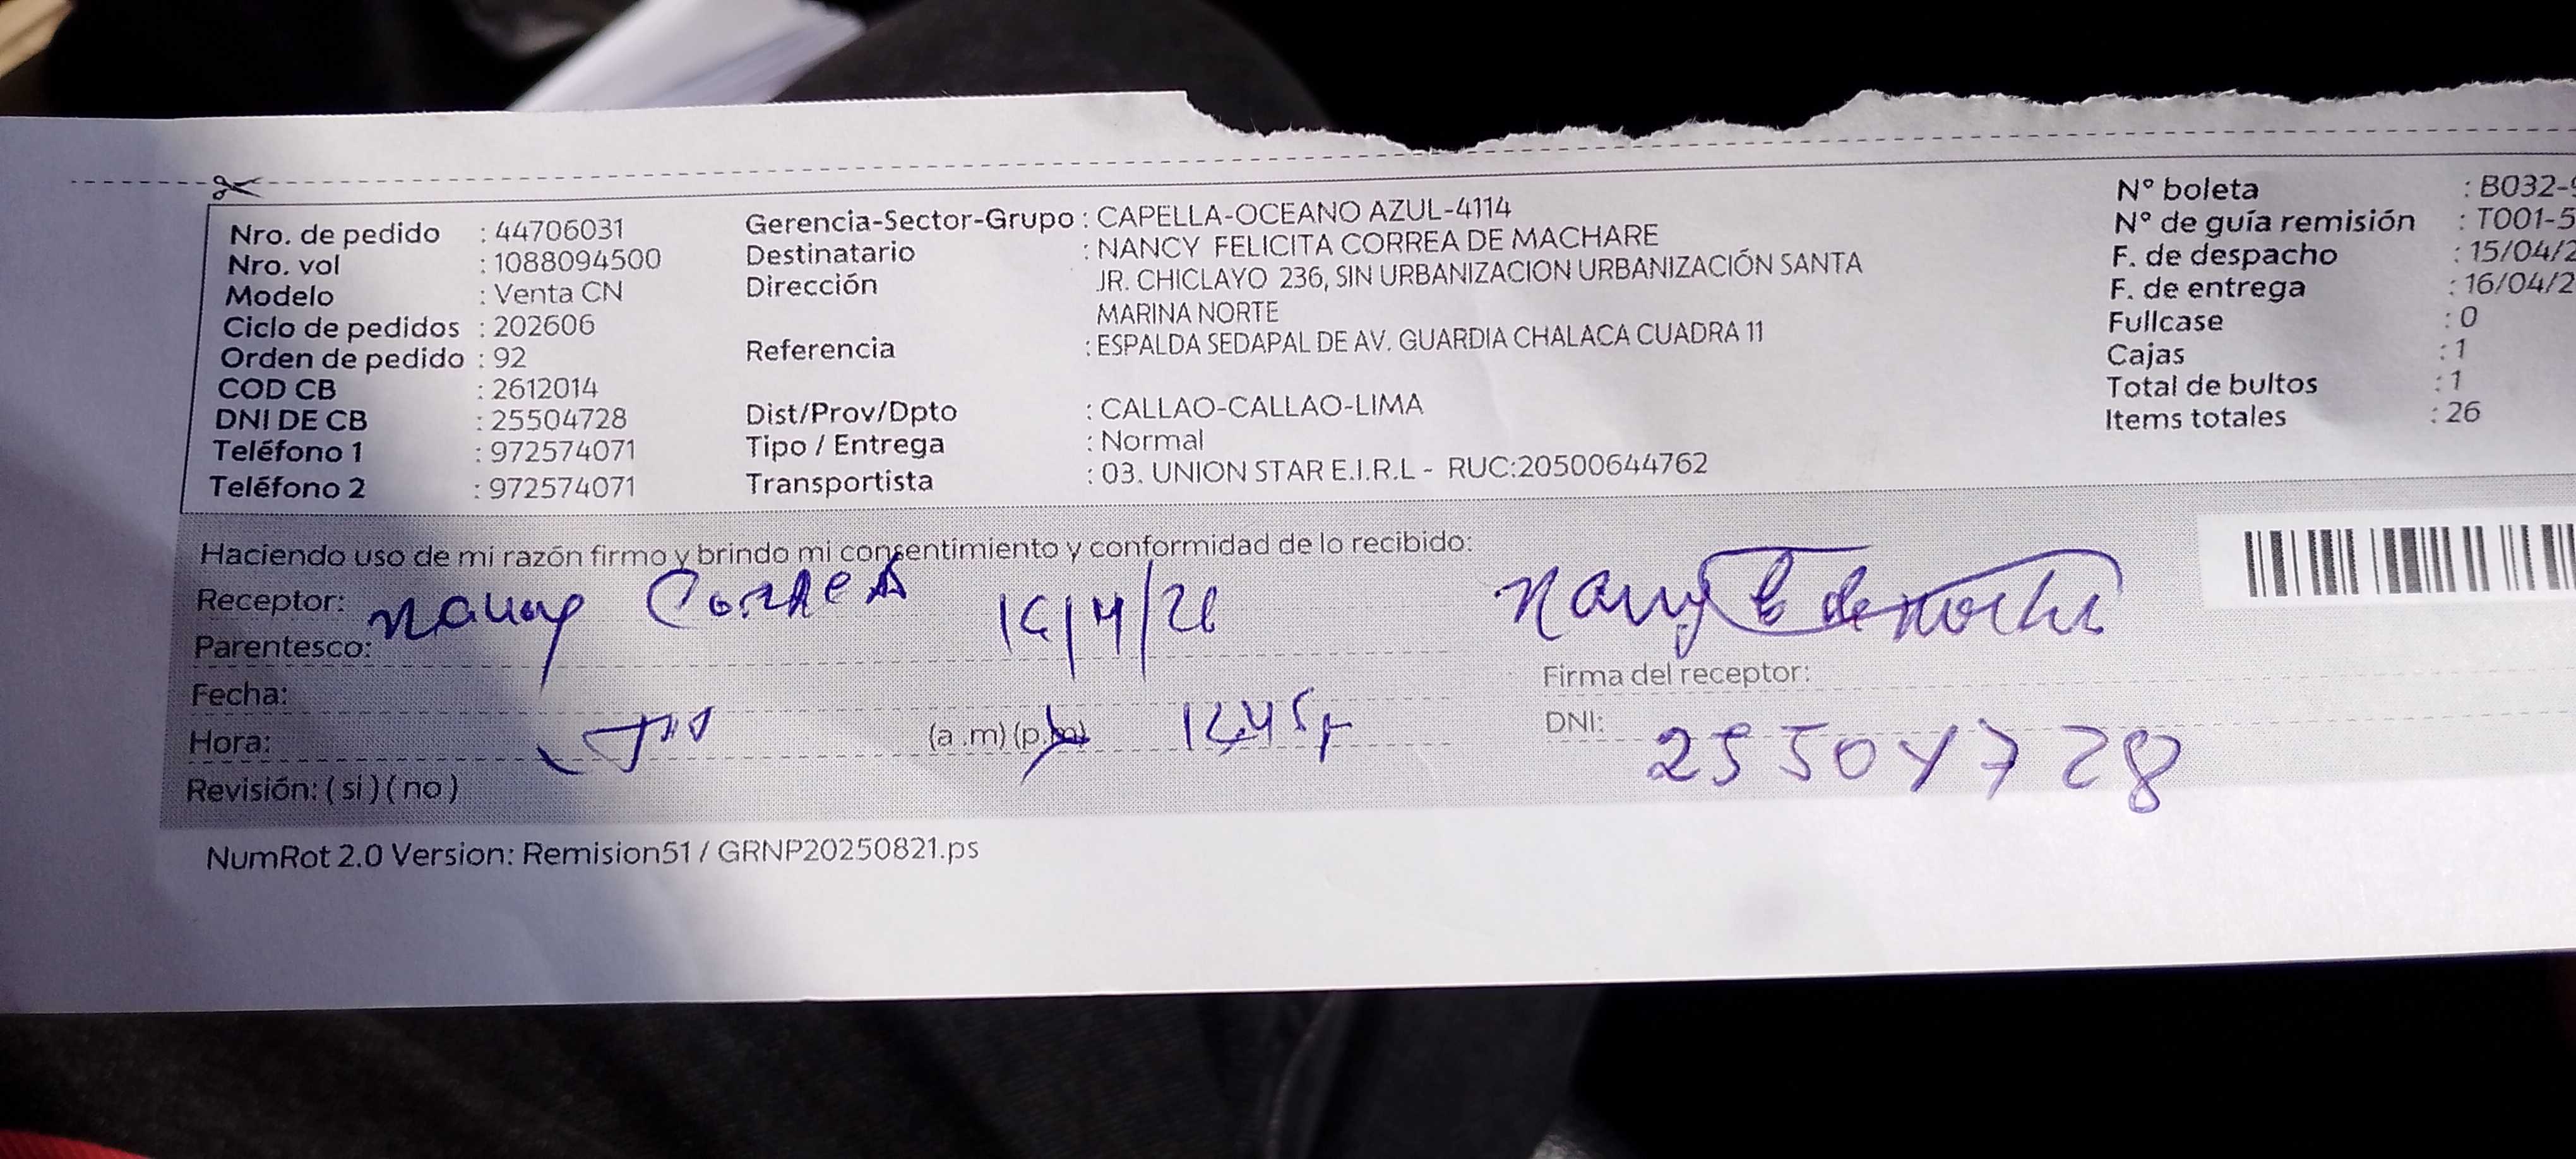 Nro. de pedido : 44706031
Nro. vol : 1088094500
Modelo : Venta CN
Ciclo de pedidos : 202606
Orden de pedido : 92
COD CB : 2612014
DNI DE CB : 25504728
Teléfono 1 : 972574071
Teléfono 2 : 972574071
Gerencia-Sector-Grupo : CAPELLA-OCEANO AZUL-4114
Destinatario : NANCY FELICITA CORREA DE MACHARE
Dirección JR. CHICLAYO 236, SIN URBANIZACION URBANIZACIÓN SANTA
MARINA NORTE
Referencia : ESPALDA SEDAPAL DE AV. GUARDIA CHALACA CUADRA 11
Dist/Prov/Dpto : CALLAO-CALLAO-LIMA
Tipo / Entrega : Normal
Transportista : 03. UNION STAR E.I.R.L - RUC:20500644762
N° boleta : B032-
N° de guía remisión : T001-5
F. de despacho : 15/04/2
F. de entrega : 16/04/2
Fullcase : 0
Cajas : 1
Total de bultos : 1
Items totales : 26
Haciendo uso de mi razón firmo y brindo mi consentimiento y conformidad de lo recibido:
Receptor: Nancy Correa 16/4/26
Parentesco:
Fecha:
Hora: (a .m) (p.m)
Revisión: ( si ) ( no )
Firma del receptor:
DNI: 25504728
NumRot 2.0 Version: Remision51 / GRNP20250821.ps